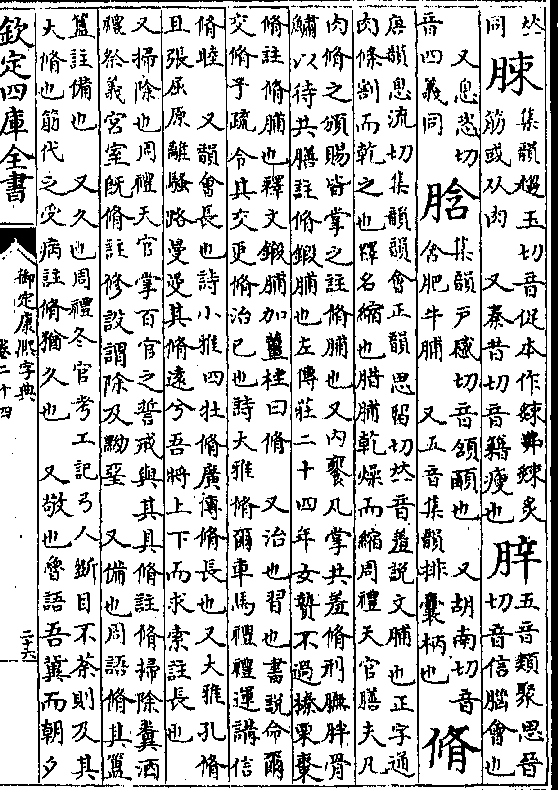 𠀤
同 脨 集韻 縬玉切音促本作𦃄𢐀𦃄炙
筋或从肉 又秦昔切音籍瘦也 脺 五音類聚思晉
切音信腦會也
又息恣切
音四義同 脗 集韻戸感切音頷頤也 又胡南切音
含肥牛脯 又五音集韻排囊柄也 脩
唐韻息流切集韻韻會正韻思留切𠀤音羞說文脯也正字通
肉條割而乾之也釋名縮也腊脯乾燥而縮周禮天官膳夫凡
肉脩之頒賜皆掌之註脩脯也又內饔凡掌共羞脩刑膴胖骨
鱐以待共膳註脩鍛脯也左傳莊二十四年女贄不過榛栗棗
脩註脩脯也釋文鍛脯加薑桂曰脩 又治也習也書說命爾
交脩予疏令其交更脩治已也詩大雅脩爾車馬禮禮運講信
脩睦 又韻會長也詩小雅四牡脩廣傳脩長也又大雅孔脩
且張屈原離騷路曼漫其脩遠兮吾將上下而求索註長也
又掃除也周禮天官掌百官之誓戒與其具脩註脩掃除糞洒
禮祭義宮室旣脩註修設謂除及黝堊 又備也周語脩其簠
簋註備也 又久也周禮冬官考工記弓人斲目不荼則及其
大脩也筋代之受病註脩猶久也 又敬也魯語吾冀而朝夕
欽定四庫全書
御定康熙字典
卷二十四
二六